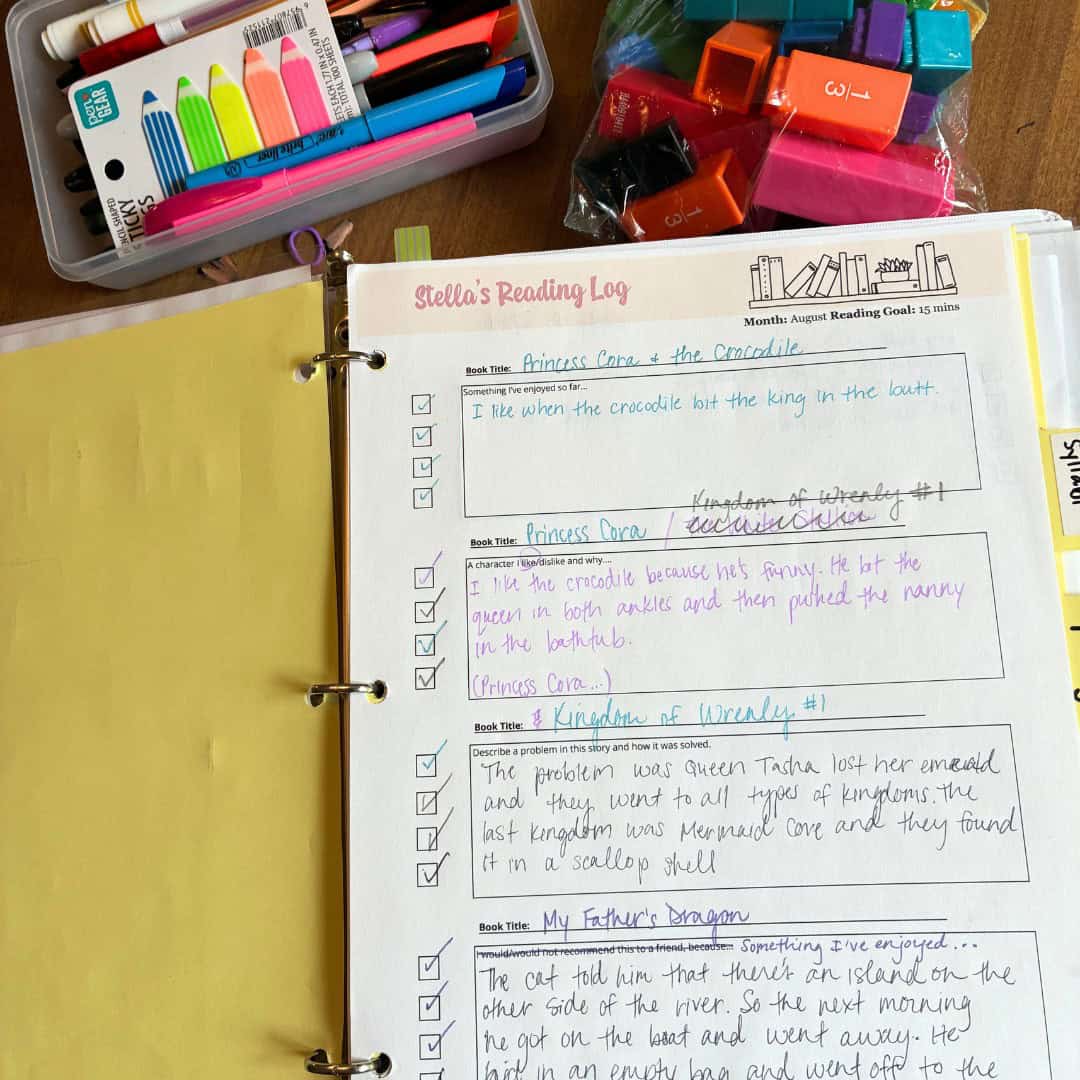 pen+
GEAR
PENCIL SHAPED
STICKY
TOTAL 100 SHEETS
BIC brite liner
1/3
1/3
Stella's Reading Log
Month: August Reading Goal: 15 mins
Book Title: Princess Cora & the Crocodile
Something I've enjoyed so far...
I like when the crocodile bit the king in the butt.
Kingdom of Wrenly #1
Book Title: Princess Cora /
A character I like/dislike and why....
I like the crocodile because he's funny. He bit the
queen in both ankles and then pushed the nanny
in the bathtub.
(Princess Cora...)
Book Title: & Kingdom of Wrenly #1
Describe a problem in this story and how it was solved.
The problem was Queen Tasha lost her emerald
and they went to all types of kingdoms. The
last kingdom was Mermaid Cove and they found
it in a scallop shell
Book Title: My Father's Dragon
I would/would not recommend this to a friend, because... Something I've enjoyed...
The cat told him that there's an island on the
other side of the river. So the next morning
he got on the boat and went away. He
in an empty bag and went off to the
Syllabi